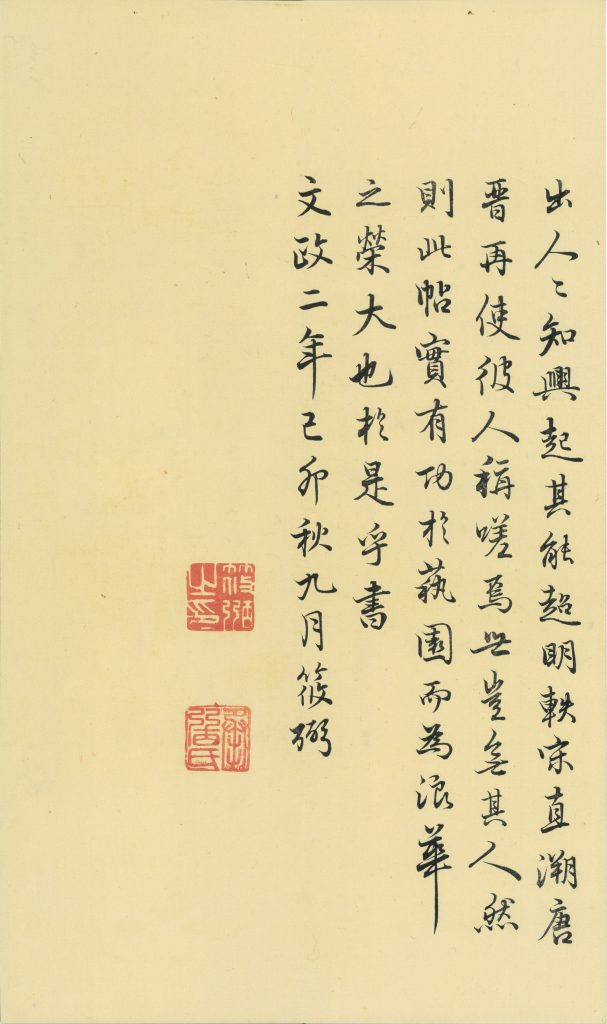 出人〻知興起其能超明軼宋直溯唐
晋再使彼人稱嗟焉世豈無其人然
則此帖實有功於藝園而為浪華
之榮大也於是乎書
文政二年己卯秋九月筱弼
筱弼之印